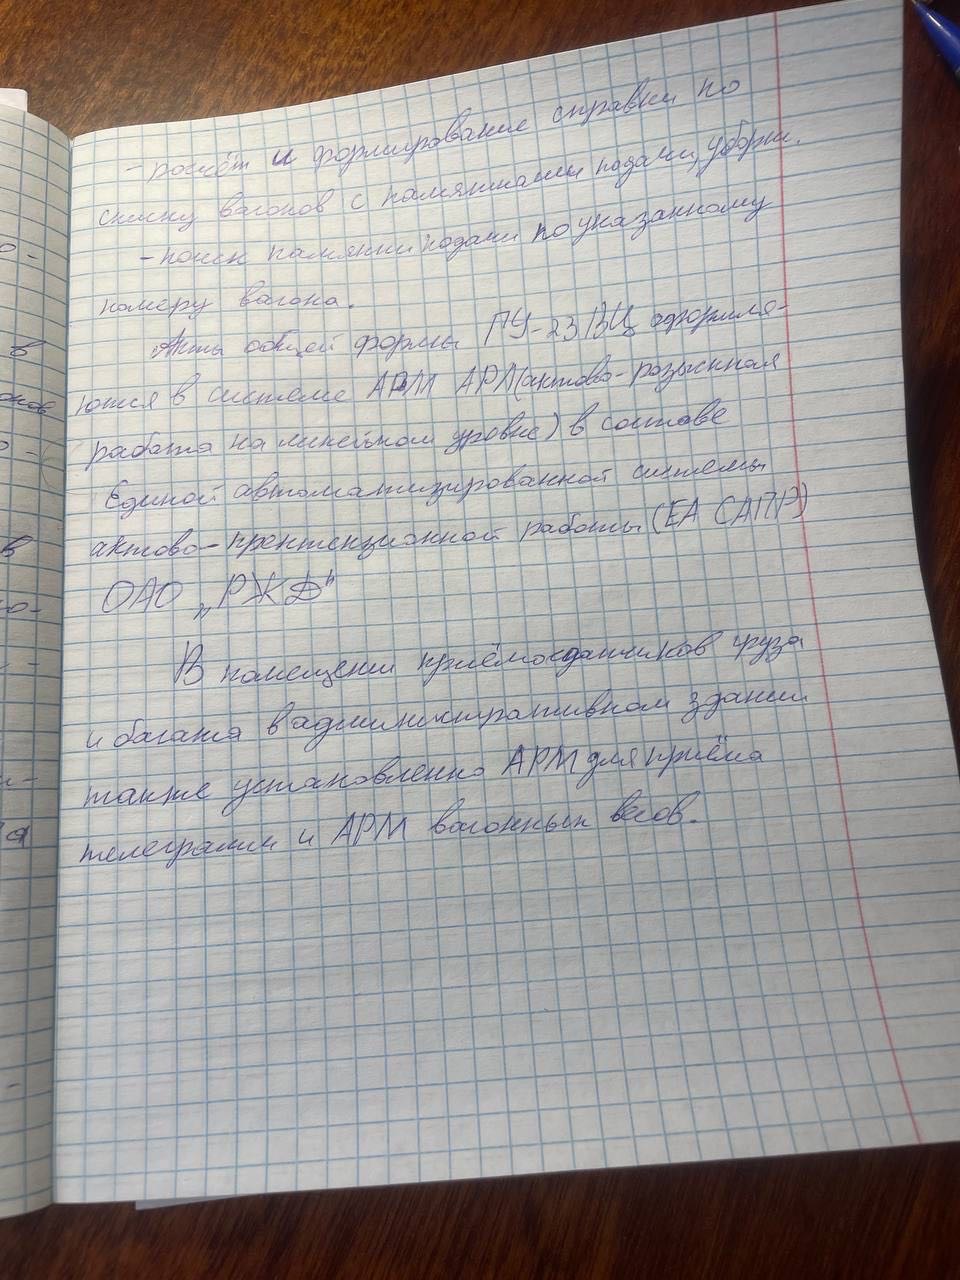 - расчёт и формирование справки по
списку вагонов с памятками подачи, уборки.
- поиск памятки подачи по указанному
номеру вагона.
Акты общей формы ГУ-23 ВЦ оформля-
ются в системе АРМ АРЛ (актово-розыскная
работа на линейном уровне) в составе
Единой автоматизированной системы
актово-претенционной работы (ЕА САПР)
ОАО „РЖД"
В помещении приёмосдатчиков груза
и багажа в административном здании
также установленно АРМ для приёма
телеграмм и АРМ вагонных весов.
о-
в
онов
о-
в
ю-
-
и-
я
-